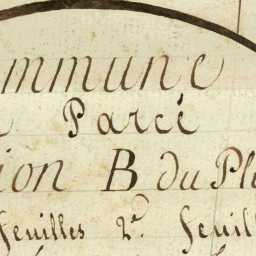 ommune
Parcé
ion B du Pl
feuilles 2e. feuill